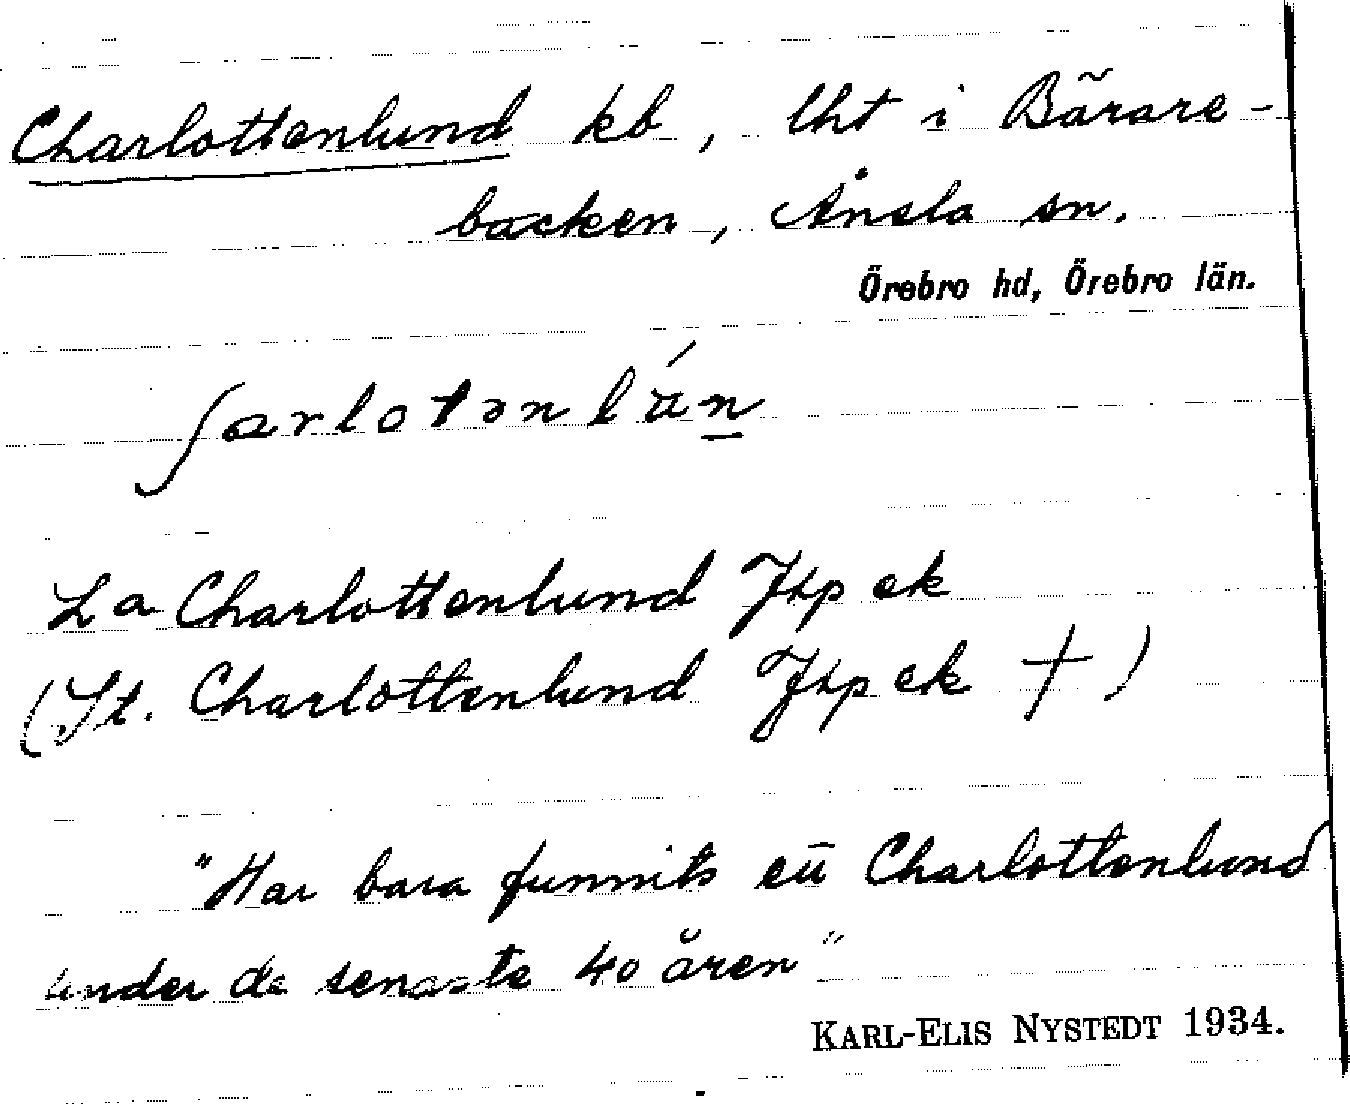 Charlottenlund kb, lht i Bärare-
backen, Ånsta sn.
Örebro hd, Örebro län.
La Charlottenlund Jkp ek
(St. Charlottenlund Jkp ek †)
"Har bara funnits ett Charlottenlund
under de senaste 40 åren"
KARL-ELIS NYSTEDT 1934.